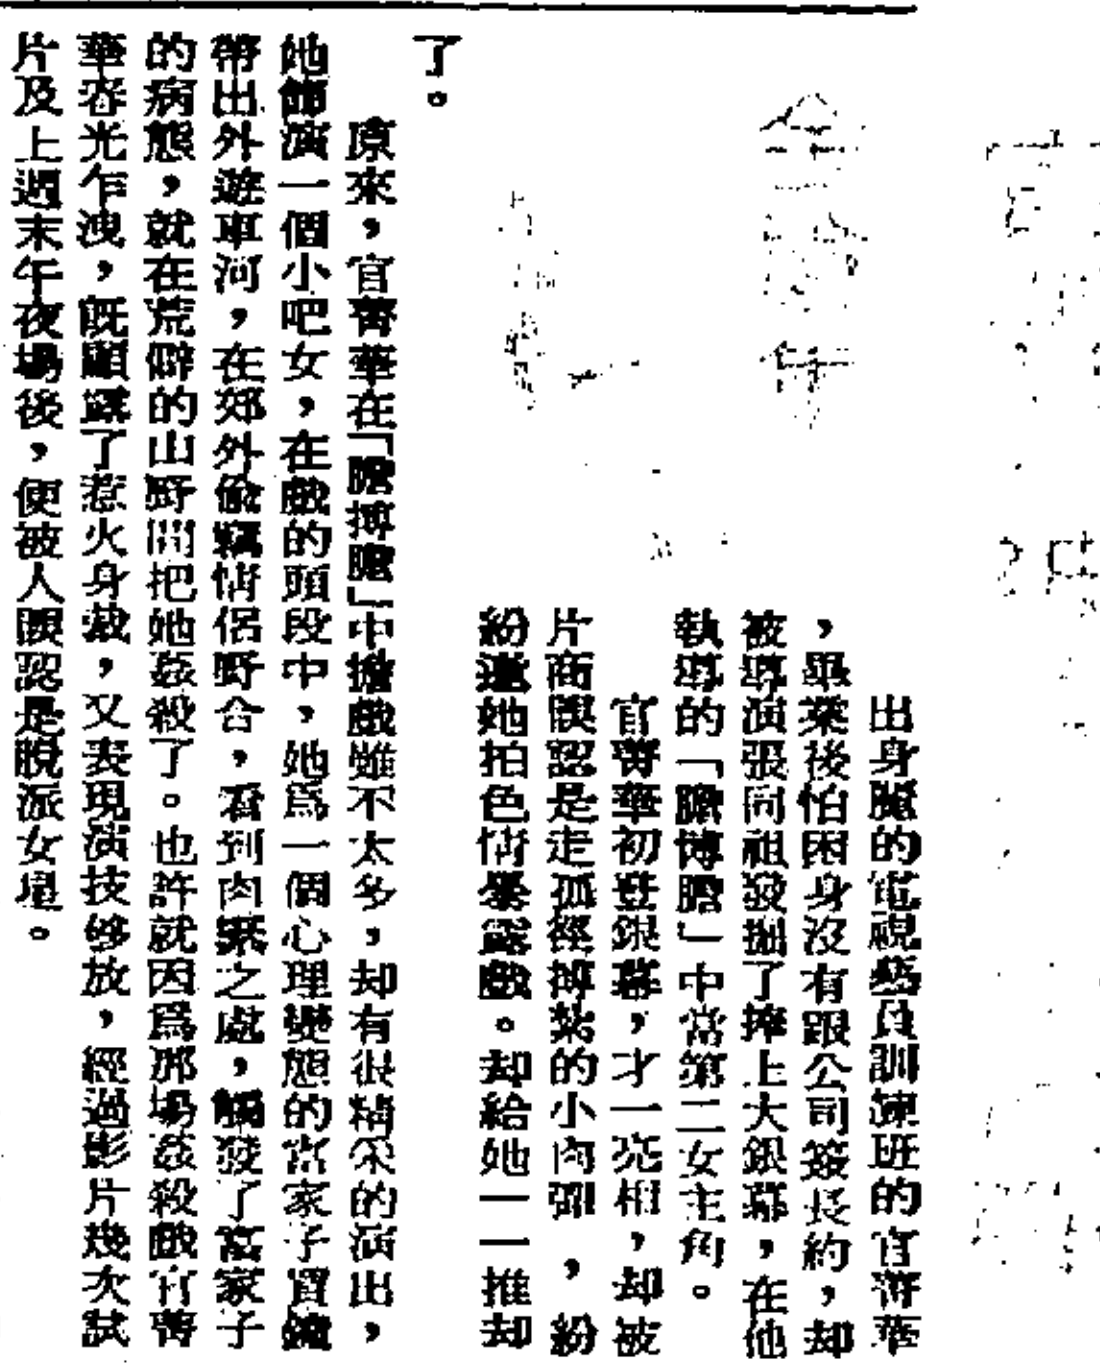 出身麗的電視藝員訓練班的官菁華
，畢業後怕困身沒有跟公司簽長約，却
被導演張同祖發掘了捧上大銀幕，在他
執導的「膽博膽」中當第二女主角。
官菁華初登銀幕，才一亮相，却被
片商誤認是走孤徑搏紮的小肉彈，紛
紛邀她拍色情暴露戲。却給她一一推却
了。
原來，官菁華在「膽搏膽」中擔戲雖不太多，却有很精采的演出，
她飾演一個小吧女，在戲的頭段中，她爲一個心理變態的富家子賈
帶出外遊車河，在郊外偷窺情侶野合，看到肉緊之處，觸發了富家子
的病態，就在荒僻的山野間把她姦殺了。也許就因爲那場姦殺戲官菁
華春光乍洩，既顯露了惹火身裁，又表現演技够放，經過影片幾次試
片及上週末午夜場後，便被人誤認是脫派女星。